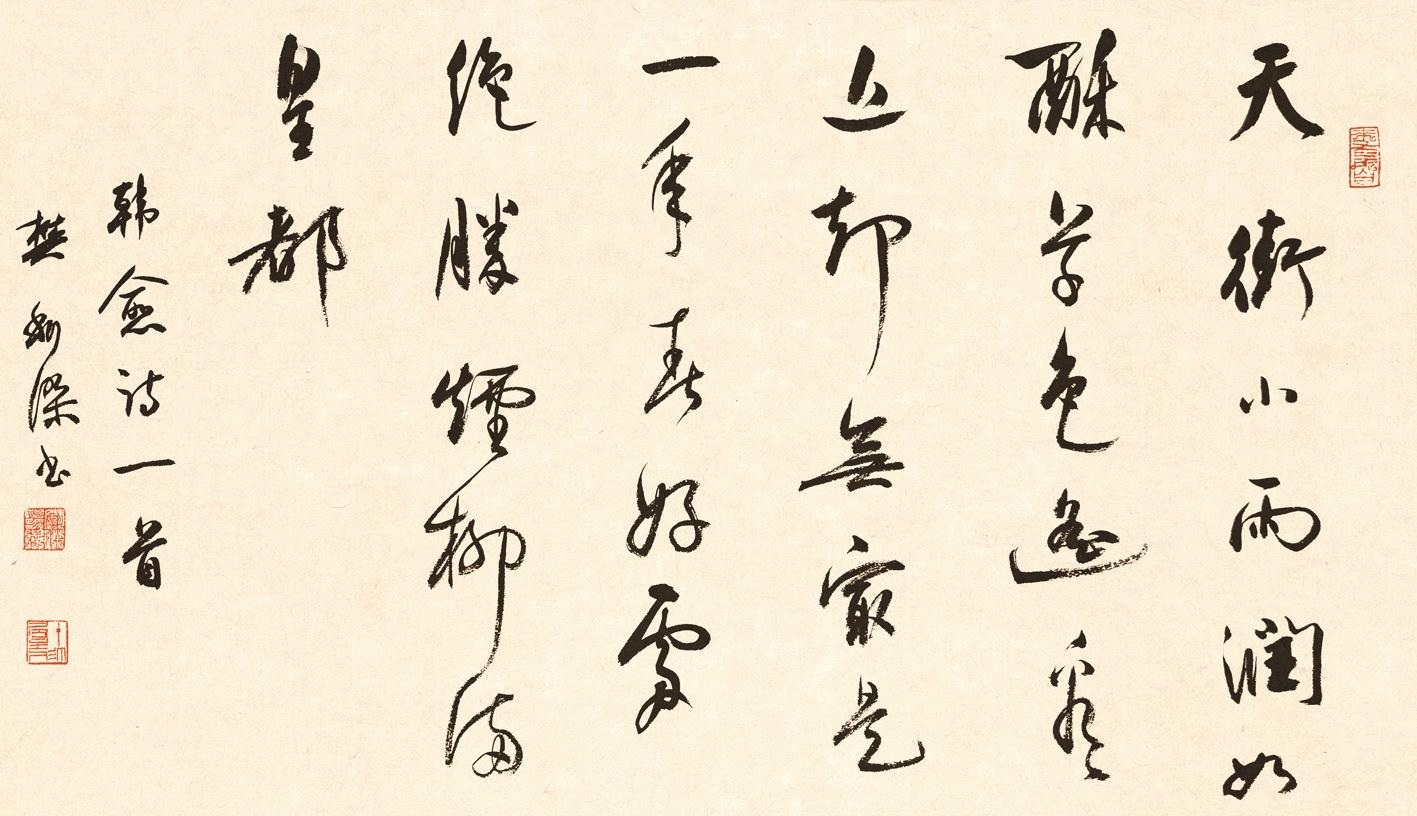 天街小雨潤如
酥草色遙看
近却無最是
一年春好處
絕勝煙柳滿
皇都
韩愈诗一首
樊利傑书